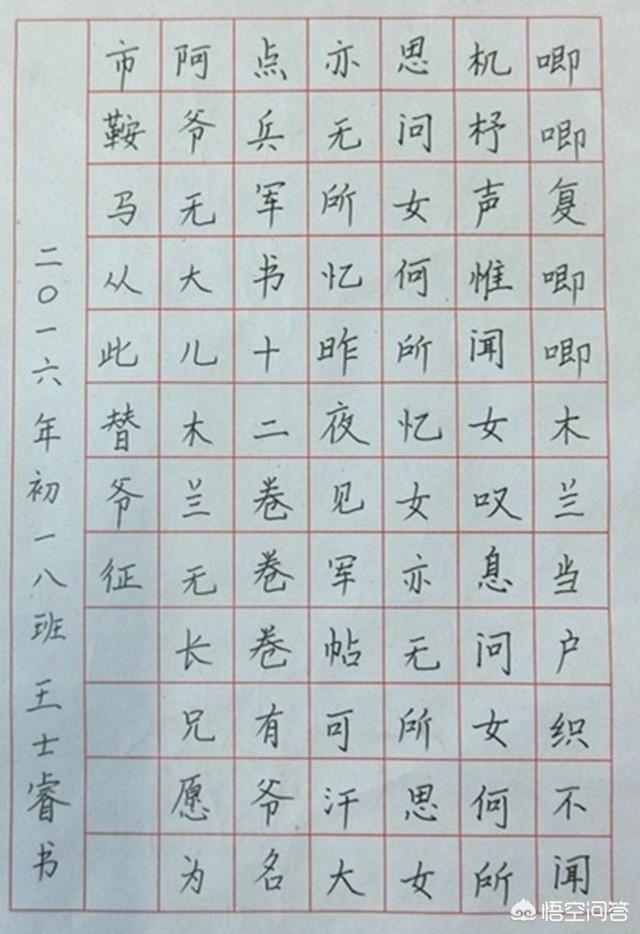 唧唧复唧唧木兰当户织不闻
机杼声惟闻女叹息问女何所
思问女何所忆女亦无所思女
亦无所忆昨夜见军帖可汗大
点兵军书十二卷卷卷有爷名
阿爷无大儿木兰无长兄愿为
市鞍马从此替爷征
二〇一六年初一八班王士睿书
悟空问答